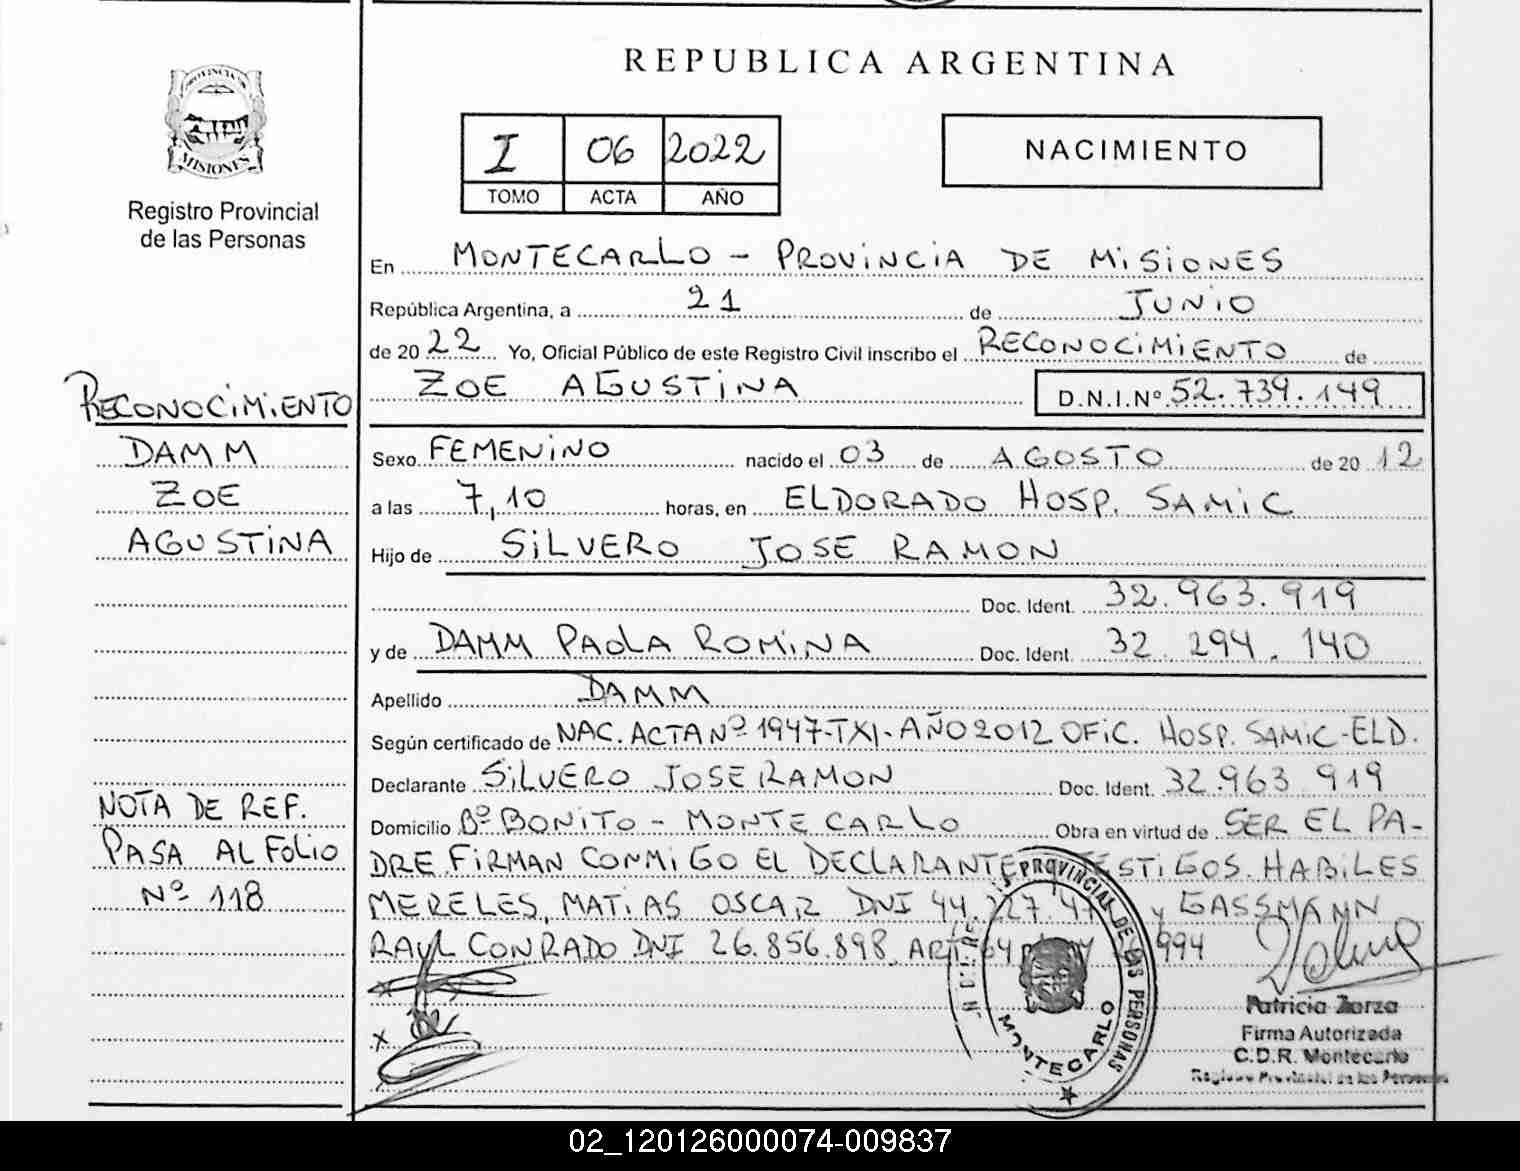 REPUBLICA ARGENTINA
PROVINCIA DE
MISIONES
Registro Provincial
de las Personas
I 06 2022
TOMO ACTA AÑO
NACIMIENTO
En MONTECARLO - PROVINCIA DE MISIONES
República Argentina, a 21 de JUNIO
de 2022 Yo, Oficial Público de este Registro Civil inscribo el RECONOCIMIENTO de
ZOE AGUSTINA D.N.I.Nº 52.739.149
RECONOCIMIENTO
DAMM
ZOE
AGUSTINA
Sexo FEMENINO nacido el 03 de AGOSTO de 2012
a las 7,10 horas, en ELDORADO HOSP. SAMIC
Hijo de SILVERO JOSE RAMON
Doc. Ident. 32.963.919
y de DAMM PAOLA ROMINA Doc. Ident. 32.294.140
Apellido DAMM
Según certificado de NAC. ACTA Nº 1947-TXI-AÑO 2012 OFIC. HOSP. SAMIC-ELD.
Declarante SILVERO JOSE RAMON Doc. Ident. 32.963.919
Domicilio Bº BONITO - MONTECARLO Obra en virtud de SER EL PA-
DRE FIRMAN CONMIGO EL DECLARANTE TESTIGOS HABILES
MERELES, MATIAS OSCAR DNI 44.227. y GASSMANN
RAUL CONRADO DNI 26.856.898 ART. 64 994
NOTA DE REF.
PASA AL FOLIO
Nº 118
PROVINCIAL DE LAS PERSONAS
MONTECARLO
Patricia Zorza
Firma Autorizada
C.D.R. Montecarlo
Registro Provincial de las Personas
02_120126000074-009837